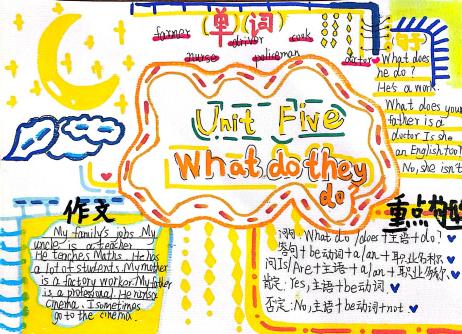 单词
farmer driver cook
nurse policeman doctor
句
What does
he do?
He's a work.
What does your
father is a
doctor Is she
an English too?
No, she isn't
Unit Five
What do they
do
作文
My family's jobs My
uncle is a teacher
He teaches Maths. He has
a lot of students. My mother
is a factory worker. My father
is a professional.
cinema. I sometimes
go to the cinema.
重点
问: What do/does+主语+do?
答句+be动词+a/an+职业名称
问Is/Are+主语+a/an+职业名称.
肯定: Yes, 主语+be动词.
否定: No, 主语+be动词+not